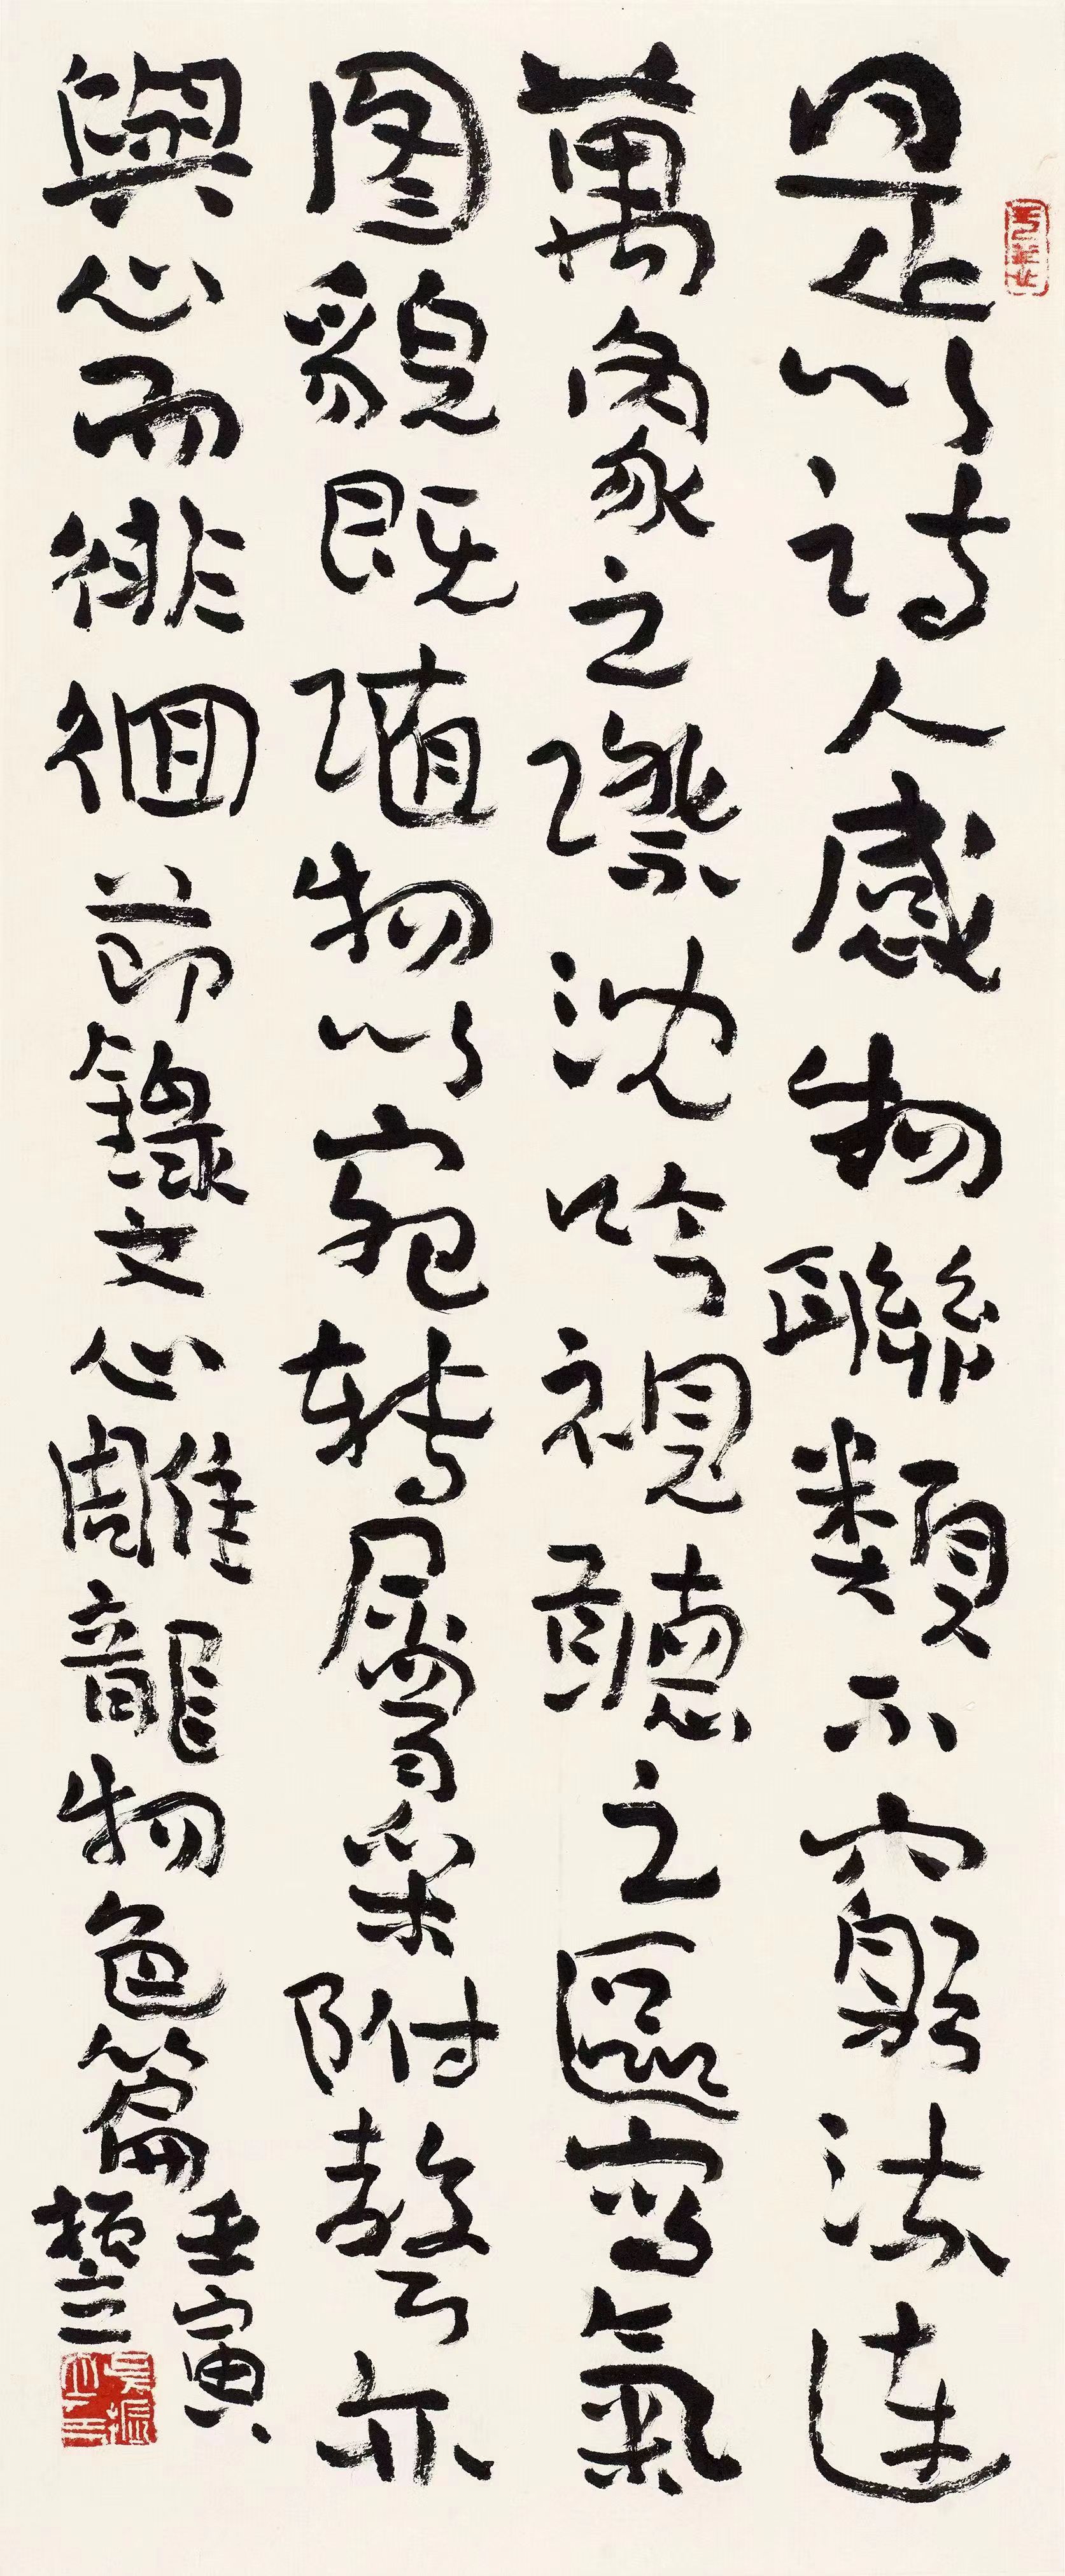 是以詩人感物聯類不窮流連
萬象之際沈吟視聽之區寫氣
图貌既隨物以宛轉屬采附聲亦
與心而徘徊節錄文心雕龍物色篇
壬寅
振立